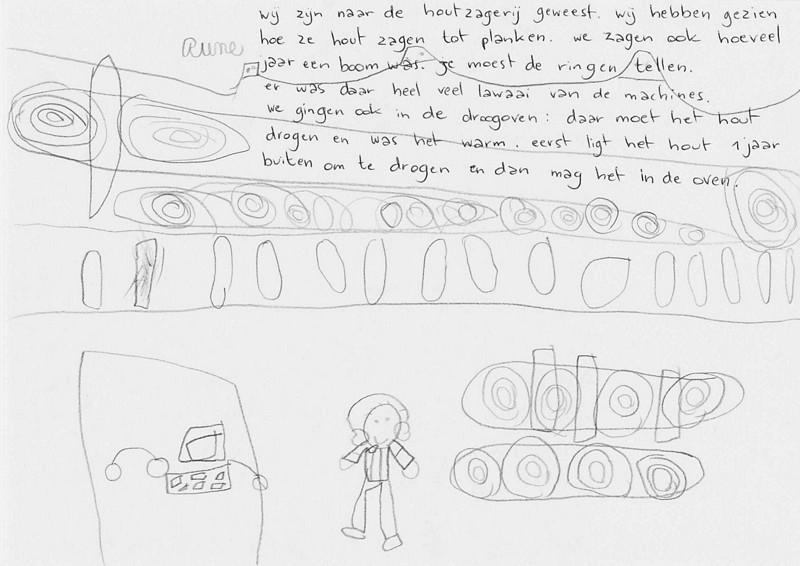 wij zijn naar de houtzagerij geweest. wij hebben gezien
Rune
hoe ze hout zagen tot planken. we zagen ook hoeveel
jaar een boom was. je moest de ringen tellen.
er was daar heel veel lawaai van de machines.
we gingen ook in de droogoven: daar moet het hout
drogen en was het warm. eerst ligt het hout 1 jaar
buiten om te drogen en dan mag het in de oven.